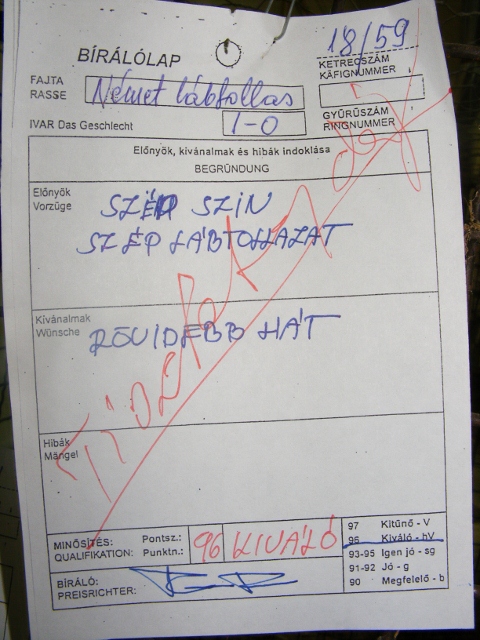 BÍRÁLÓLAP
18/59
KETRECSZÁM
KÄFIGNUMMER
FAJTA
RASSE
Német lábtollas
GYŰRŰSZÁM
RINGNUMMER
IVAR Das Geschlecht
1-0
Előnyök, kívánalmak és hibák indoklása
BEGRÜNDUNG
Előnyök
Vorzüge
SZÉP SZIN
SZÉP LÁBTOLLAZAT
Kívánalmak
Wünsche
RÖVIDEBB HÁT
Hibák
Mängel
MINŐSÍTÉS: Pontsz.:
QUALIFIKATION: Punktn.:
96 KIVÁLÓ
97 Kitűnő - V
96 Kiváló - hV
93-95 Igen jó - sg
91-92 Jó - g
90 Megfelelő - b
BÍRÁLÓ:
PREISRICHTER: